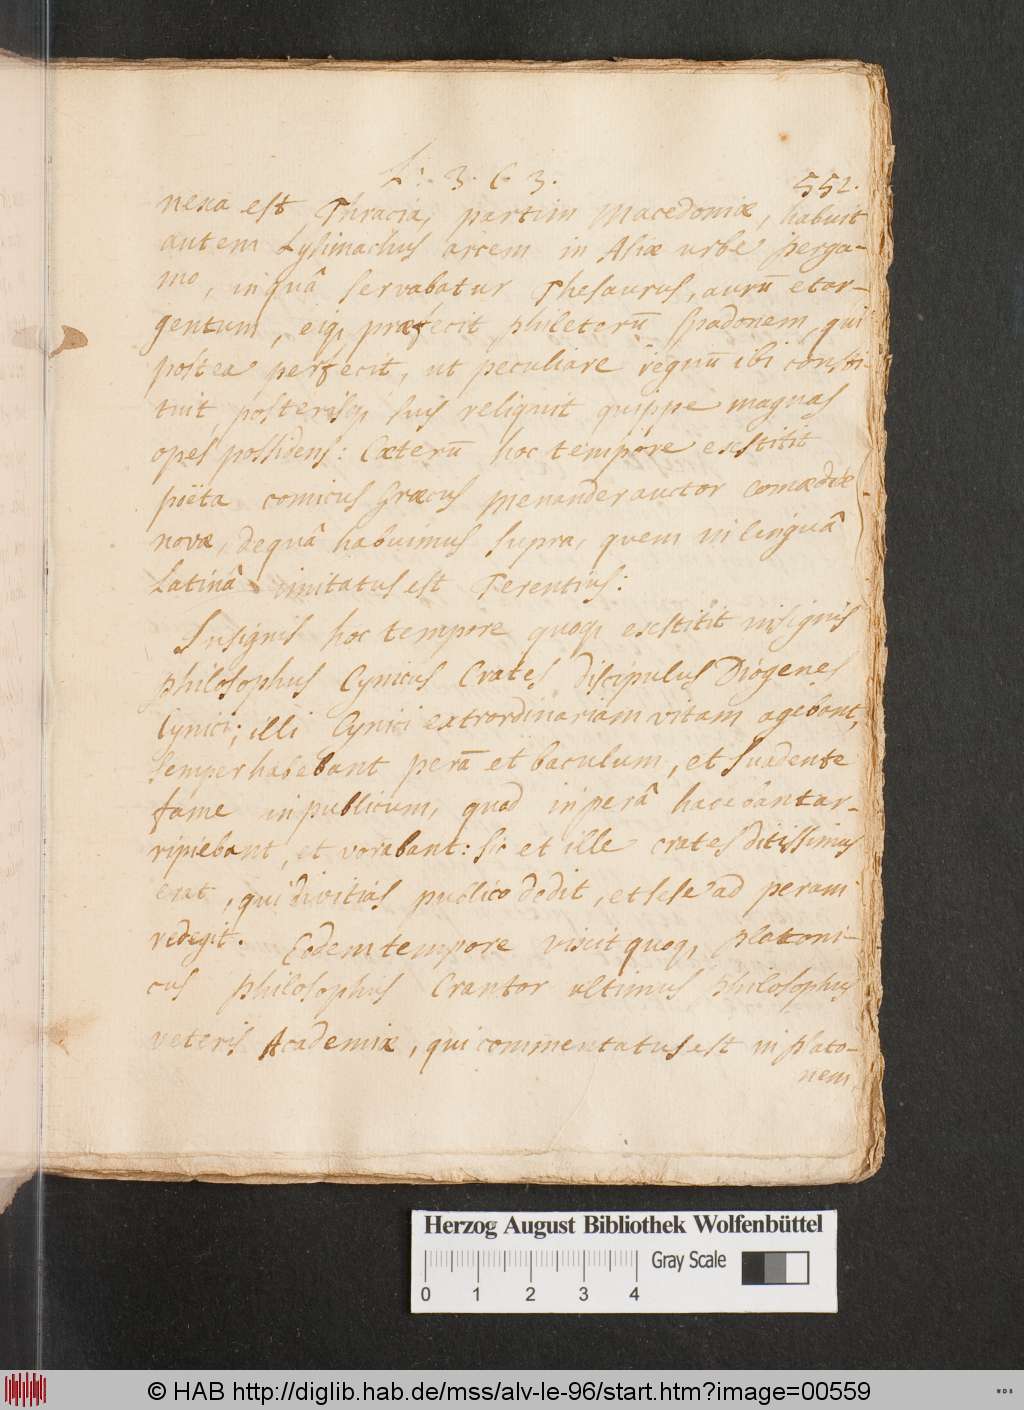 L: 3. C 3. 552.
nexa est Thracia, partim Macedoniæ, habuit
autem Lysimachus arcem in Asiæ urbe perga-
mo, in quâ servabatur Thesaurus, aurū et ar-
gentum, eiq, præfecit phileterū Spadonem, qui
postea perfecit, ut peculiare regnū ibi consti-
tuit, posterisq, suis reliquit quippe magnas
opes possidens: Cæterū hoc tempore exstitit
pöeta comicus Græcus Menander auctor comædiæ
novæ, de quâ habuimus supra, quem in linguâ
Latinâ imitatus est Terentius:
Insignis hoc tempore quoq, exstitit insignis
philosophus Cynicus Crates discipulus Diogenes
Cynici; illi Cynici extrordinariam vitam agebant,
semper habebant perā et baculum, et suadente
fame in publicum, quod in perâ habebant ar-
ripiebant, et vorabant: sic et ille crates ditissimus
erat, qui divitias publico dedit, et sese ad peram
redegit. Eodem tempore vixit quoq, platoni-
cus philosophus Crantor ultimus philosophus
veteris Academiæ, qui commentatus est in plato-
nem
Herzog August Bibliothek Wolfenbüttel
Gray Scale
0 1 2 3 4
© HAB http://diglib.hab.de/mss/alv-le-96/start.htm?image=00559